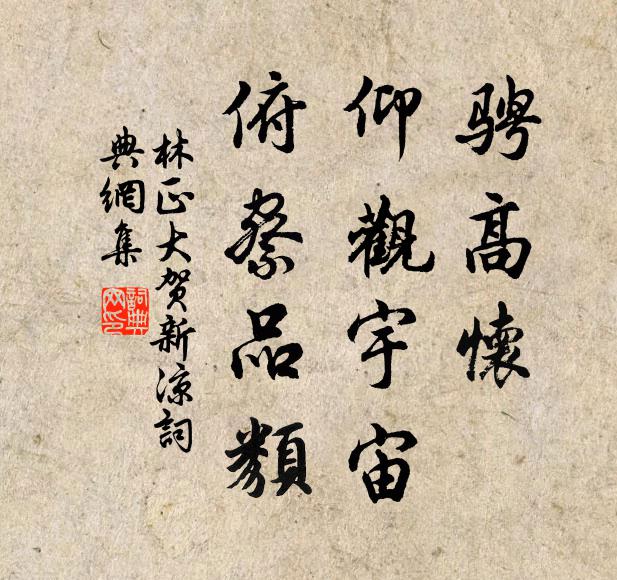 骋高懷
仰觀宇宙
俯察品類
林正大贺新涼詞
典網集
詞典網印